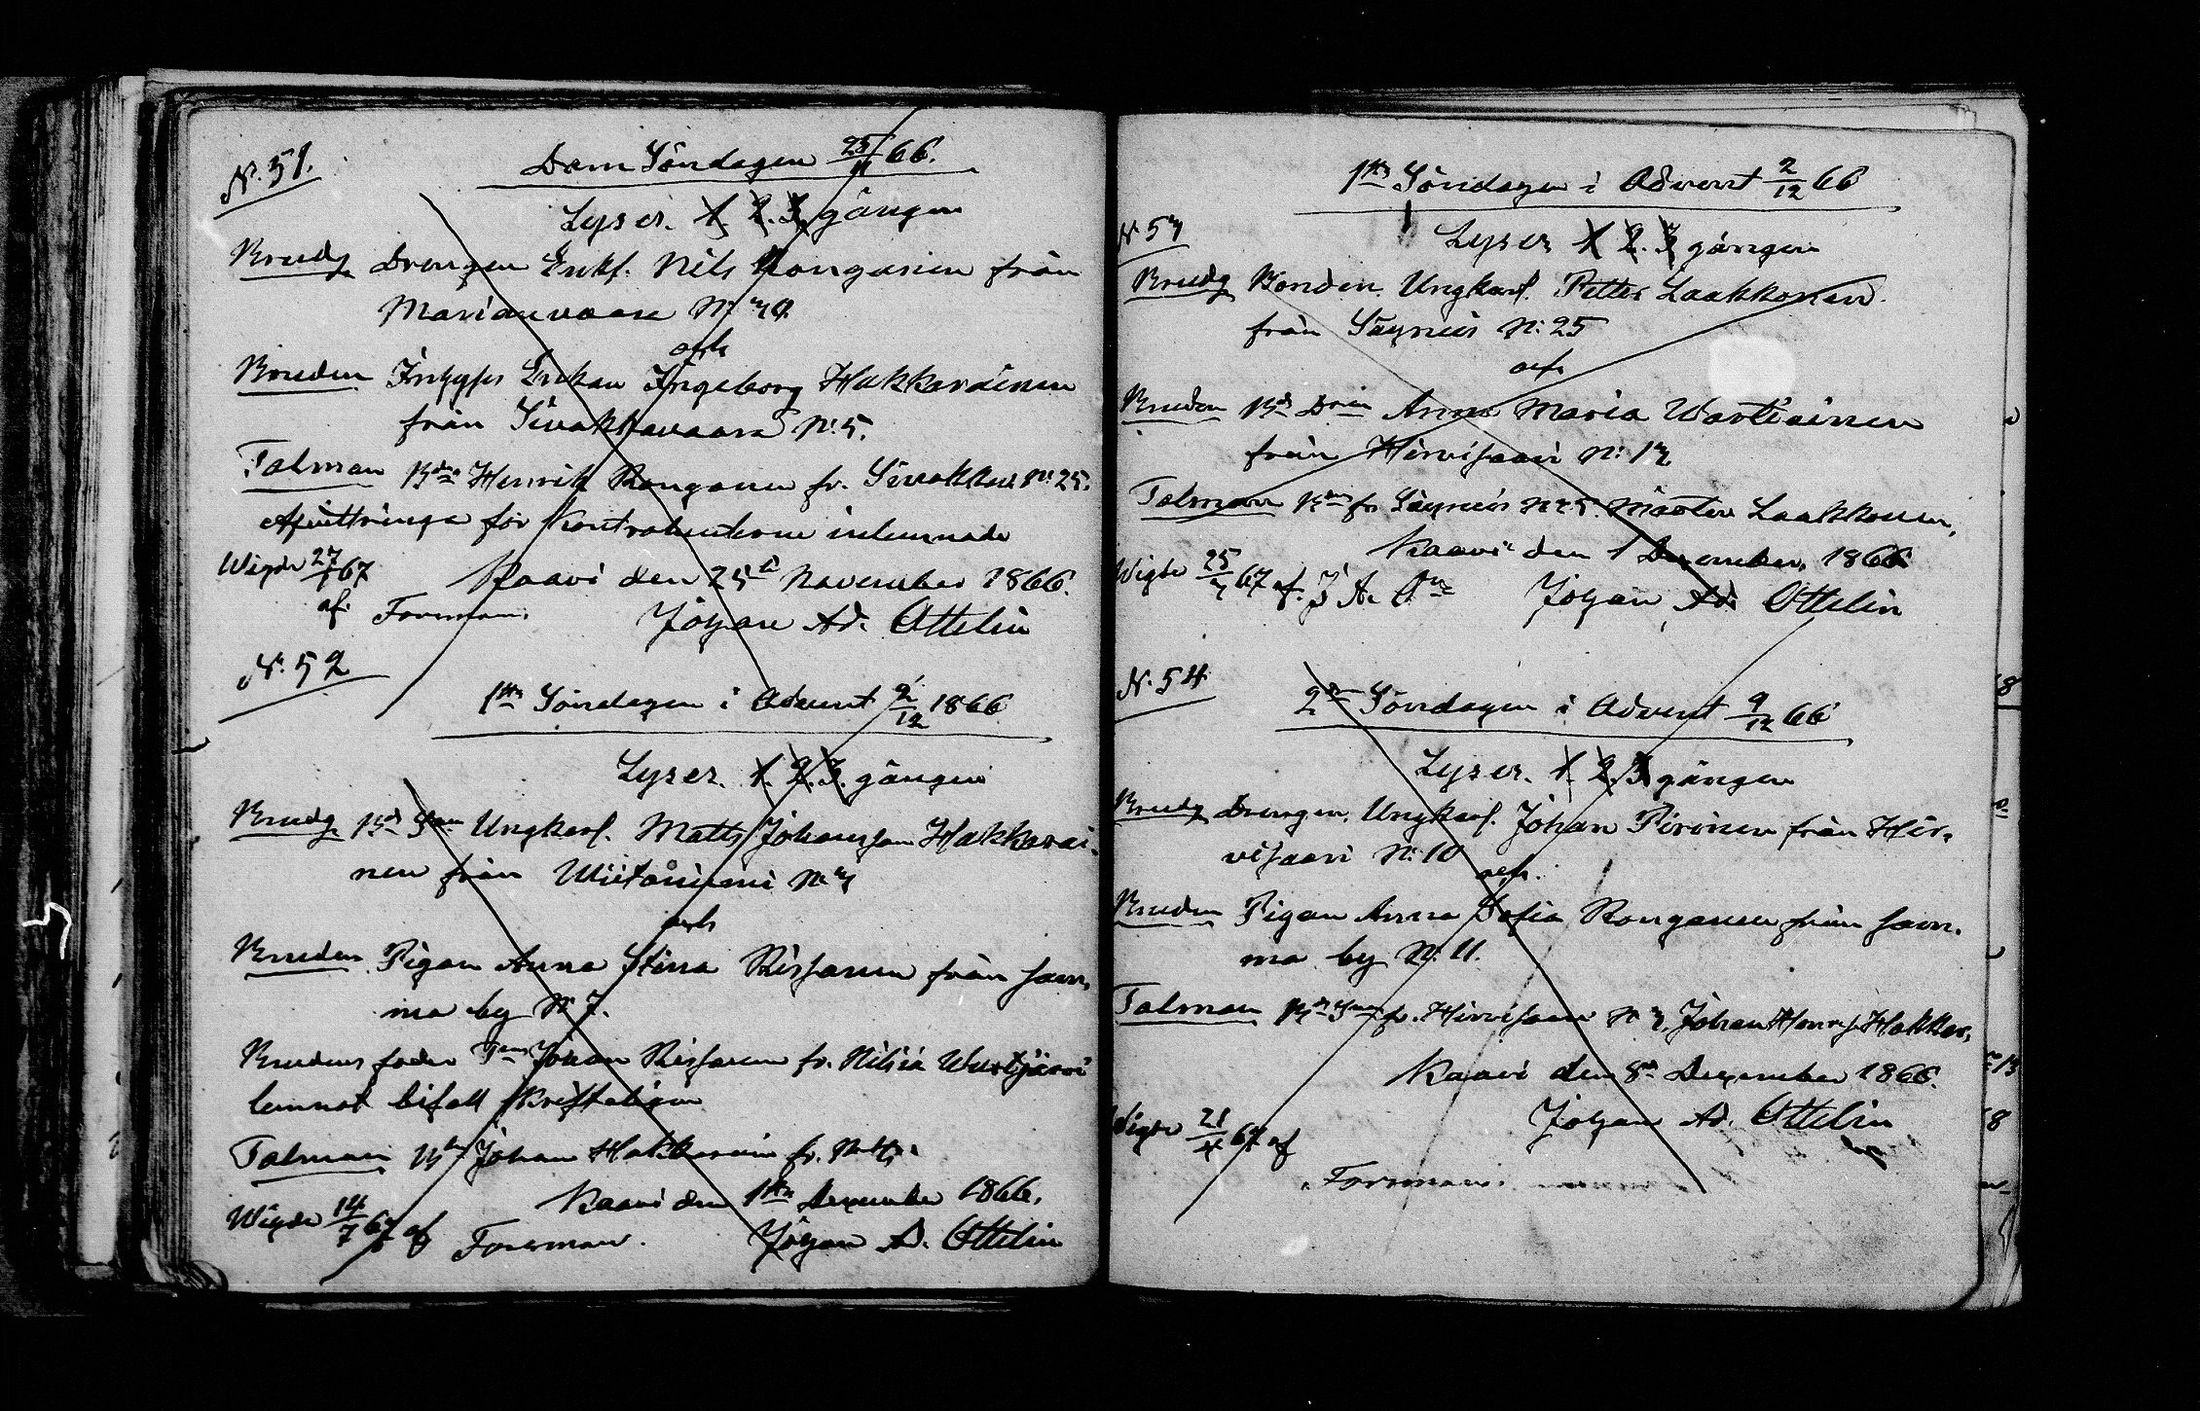 N. 51.
Dom Söndagen 25/11 66.
Lyser. 1. 2. 3. gången
Brudg. Drengen Enkl. Nils Ronganen från
Marianvaara N:
och
Bruden Inhyses Enkan Ingeborg Hakkarainen
från Sivakkavaara N: 5.
Talman Bdn Henrik Ronganen fr. Sivakkav. N: 25.
för Kontrahenterne inlemnade
Wigde 27/1 67
af.
Forsman.
Kaavi den 25te November 1866.
Johan Ad. Ottelin
N. 52
1sta Söndagen i Advent 2/12 1866
Lyser. 1. 2. 3. gången
Brudg. Bd Son Ungkarl. Matts Johansson Hakkarai-
nen från Wiitaniemi N: 7
och
Bruden Pigan Anna Stina Rissanen från sam-
ma by N: 7.
Brudens fader Johan Rissanen fr. Nilsiä
lemnat bifall skrifteligen
Talman Bdn Johan Hakkarainen fr.
Kaavi den 1sta December 1866.
Wigde 14/7 67 af Forsman.
Johan Ad. Ottelin
1sta Söndagen i Advent 2/12 66
N 53
Lyser 1 2. 3 gången
Brudg Bonden. Ungkarl. Petter Laakkonen.
från Säyneis N: 25
och
Bruden Bd Drn Anna Maria Wartiainen
från Hirvisaari N: 13.
Talman Bdn fr Säyneis N: 25. Mårten Laakkonen.
Kaavi den 1 December, 1866
Wigde 25/3 67 af. J. A. On
Johan Ad. Ottelin
N. 54
2dra Söndagen i Advent 9/12 66
Lyser. 1. 2. 3 gången
Brudg Drengen. Ungkarl. Johan Pirinen från Hir-
visaari N: 10
och.
Bruden Pigan Anna Sofia Ronganen från sam-
ma by N: 11.
Talman Bd Son fr. Hirvisaari N 3. Johan Henr. Hakkar.
Kaavi den 8de December 1866.
Johan Ad. Ottelin
Wigde 21/4 67 af
Forsman.